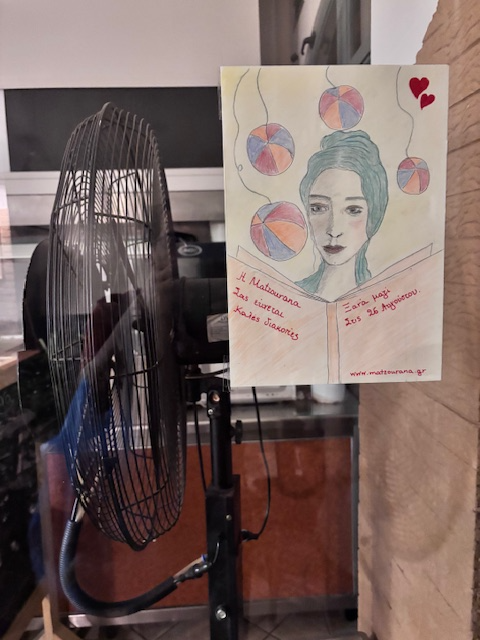 Η Matzourana
Σας εύχεται
Καλές διακοπές
Ξανά μαζί
Στις 26 Αυγούστου
www.matzourana.gr